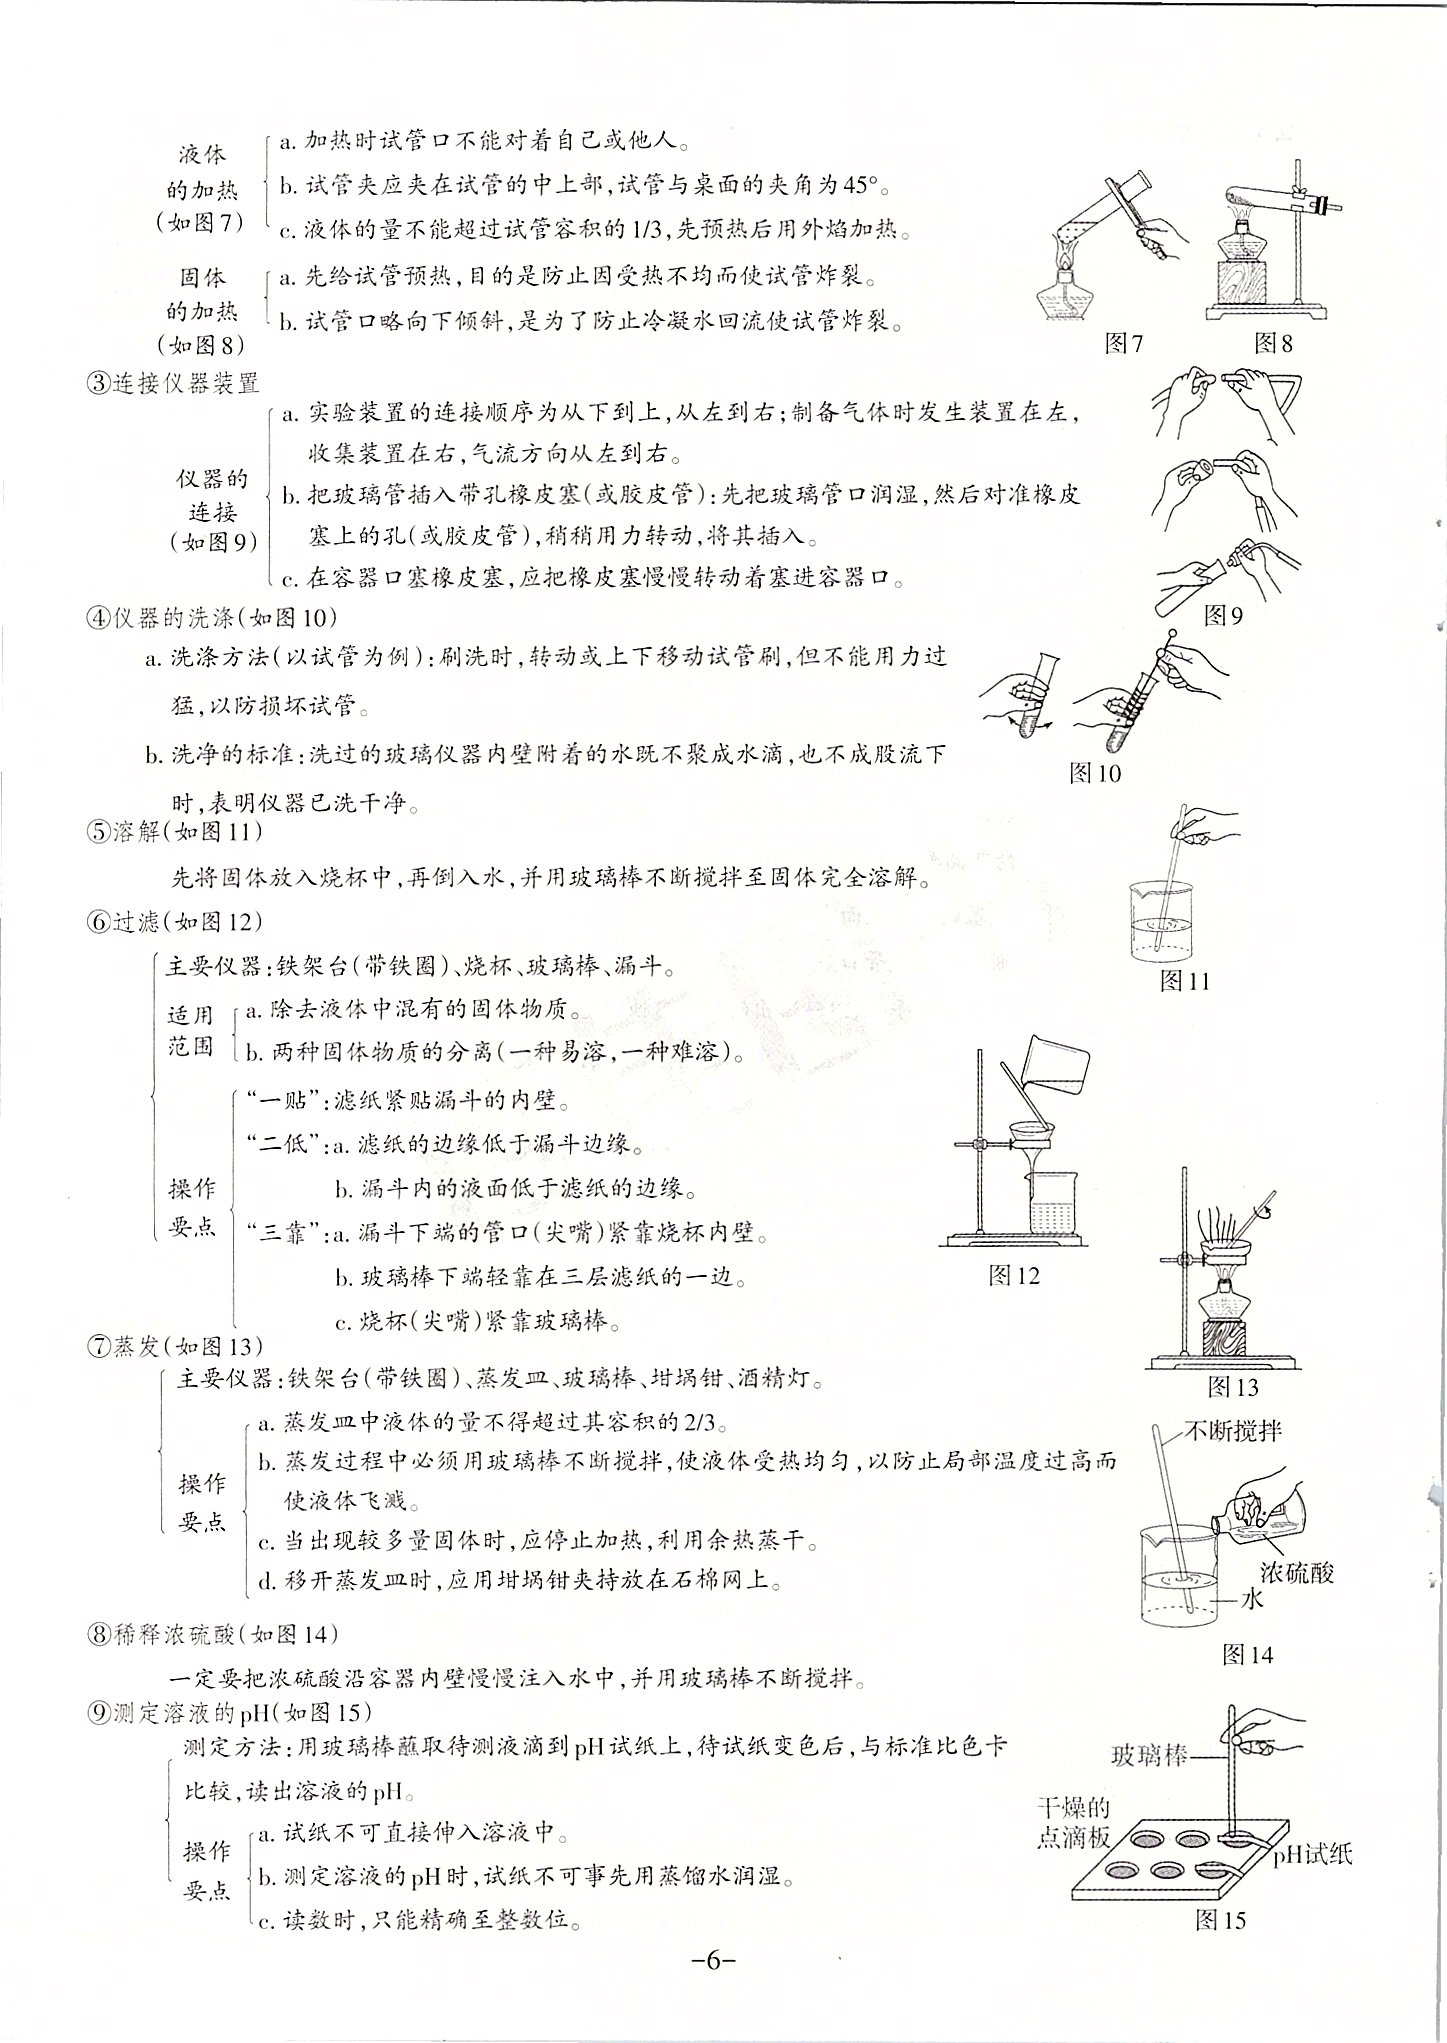 液体
的加热
(如图7)
a. 加热时试管口不能对着自己或他人。
b. 试管夹应夹在试管的中上部,试管与桌面的夹角为45°。
c. 液体的量不能超过试管容积的1/3,先预热后用外焰加热。
固体
的加热
(如图8)
a. 先给试管预热,目的是防止因受热不均而使试管炸裂。
b. 试管口略向下倾斜,是为了防止冷凝水回流使试管炸裂。
图7
图8
③连接仪器装置
仪器的
连接
(如图9)
a. 实验装置的连接顺序为从下到上,从左到右;制备气体时发生装置在左,
收集装置在右,气流方向从左到右。
b. 把玻璃管插入带孔橡皮塞(或胶皮管):先把玻璃管口润湿,然后对准橡皮
塞上的孔(或胶皮管),稍稍用力转动,将其插入。
c. 在容器口塞橡皮塞,应把橡皮塞慢慢转动着塞进容器口。
图9
④仪器的洗涤(如图10)
a. 洗涤方法(以试管为例):刷洗时,转动或上下移动试管刷,但不能用力过
猛,以防损坏试管。
b. 洗净的标准:洗过的玻璃仪器内壁附着的水既不聚成水滴,也不成股流下
时,表明仪器已洗干净。
图10
⑤溶解(如图11)
先将固体放入烧杯中,再倒入水,并用玻璃棒不断搅拌至固体完全溶解。
图11
⑥过滤(如图12)
主要仪器:铁架台(带铁圈)、烧杯、玻璃棒、漏斗。
适用
范围
a. 除去液体中混有的固体物质。
b. 两种固体物质的分离(一种易溶,一种难溶)。
操作
要点
“一贴”:滤纸紧贴漏斗的内壁。
“二低”:a. 滤纸的边缘低于漏斗边缘。
b. 漏斗内的液面低于滤纸的边缘。
“三靠”:a. 漏斗下端的管口(尖嘴)紧靠烧杯内壁。
b. 玻璃棒下端轻靠在三层滤纸的一边。
c. 烧杯(尖嘴)紧靠玻璃棒。
图12
⑦蒸发(如图13)
主要仪器:铁架台(带铁圈)、蒸发皿、玻璃棒、坩埚钳、酒精灯。
操作
要点
a. 蒸发皿中液体的量不得超过其容积的2/3。
b. 蒸发过程中必须用玻璃棒不断搅拌,使液体受热均匀,以防止局部温度过高而
使液体飞溅。
c. 当出现较多量固体时,应停止加热,利用余热蒸干。
d. 移开蒸发皿时,应用坩埚钳夹持放在石棉网上。
图13
不断搅拌
浓硫酸
水
图14
⑧稀释浓硫酸(如图14)
一定要把浓硫酸沿容器内壁慢慢注入水中,并用玻璃棒不断搅拌。
⑨测定溶液的pH(如图15)
测定方法:用玻璃棒蘸取待测液滴到pH试纸上,待试纸变色后,与标准比色卡
比较,读出溶液的pH。
操作
要点
a. 试纸不可直接伸入溶液中。
b. 测定溶液的pH时,试纸不可事先用蒸馏水润湿。
c. 读数时,只能精确至整数位。
玻璃棒
干燥的
点滴板
pH试纸
图15
-6-